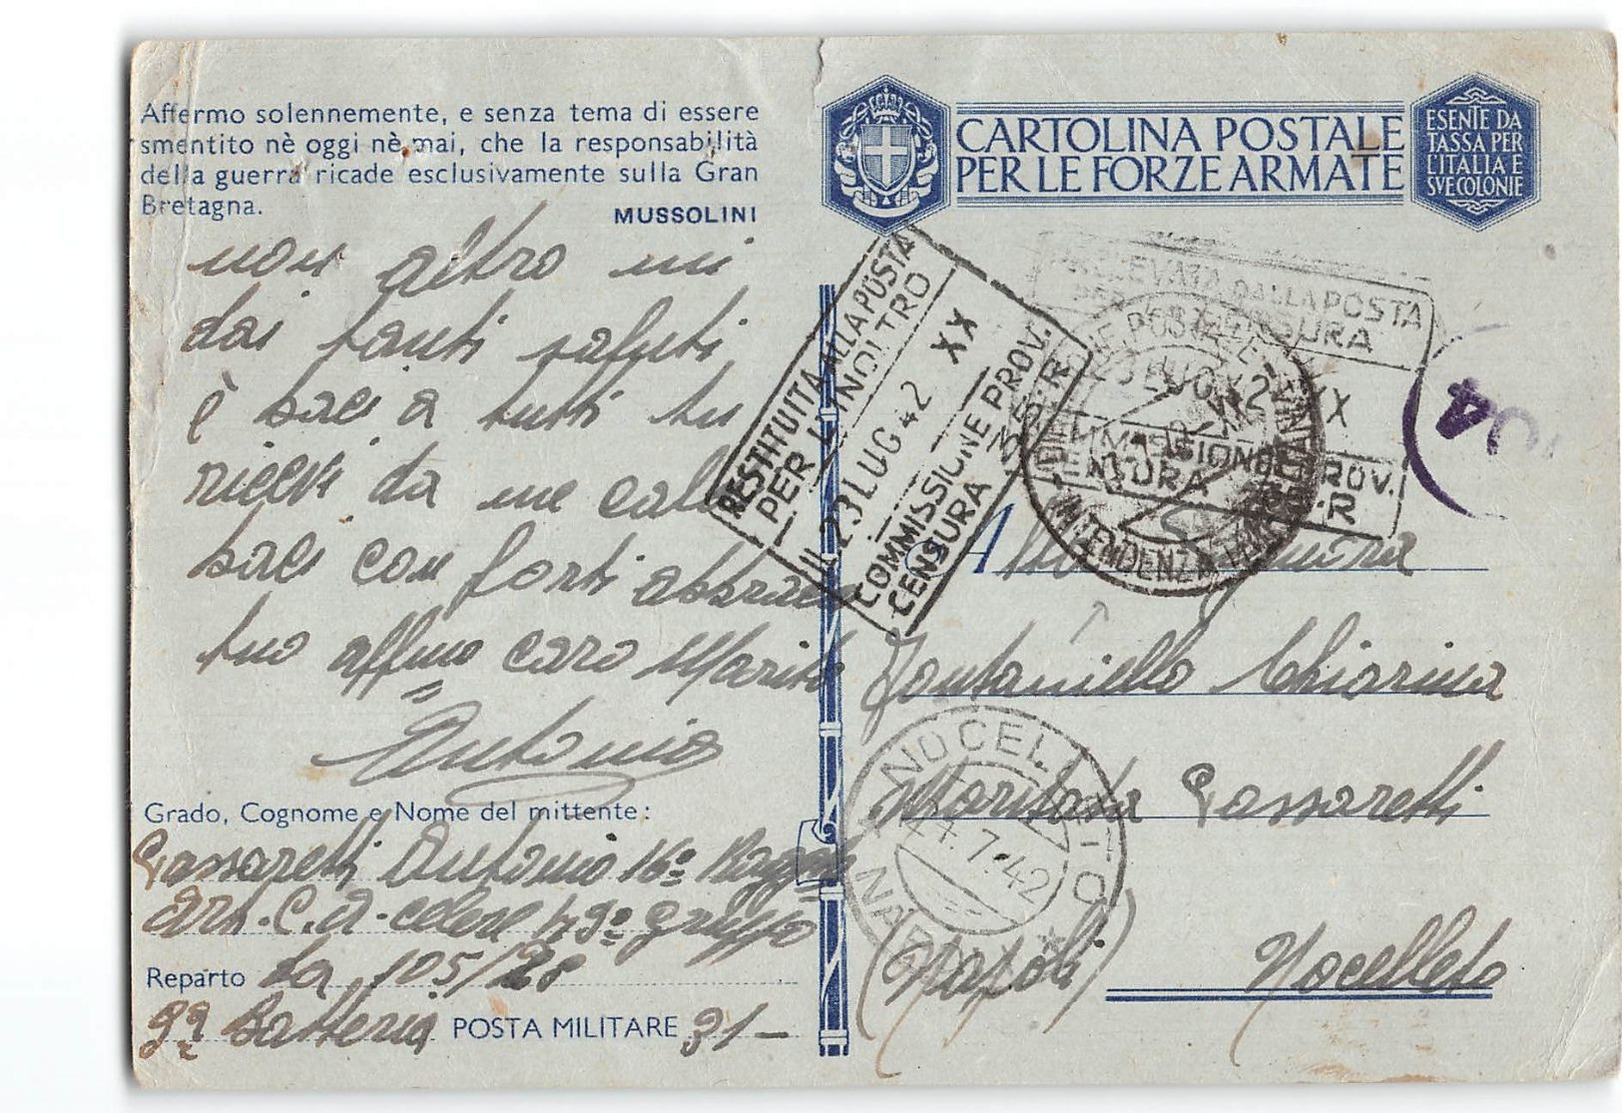 Affermo solennemente, e senza tema di essere
smentito nè oggi nè mai, che la responsabilità
della guerra ricade esclusivamente sulla Gran
Bretagna.
MUSSOLINI
non altro mi
dai tanti saluti
è baci a tutti tu
ricevi da me caldi
baci con forti abbracci
tuo affmo caro Marito
Antonio
Grado, Cognome e Nome del mittente:
Passaretti Antonio 16º Ragg.
Art. C. A. celere 49º gruppo
Reparto da 105/28
9ª Batteria POSTA MILITARE 31-
CARTOLINA POSTALE
PER LE FORZE ARMATE
ESENTE DA
TASSA PER
L'ITALIA E
SVE COLONIE
RESTITUITA ALLA POSTA
PER L'INOLTRO
23 LUG 42 XX
COMMISSIONE PROV.
CENSURA
PRELEVATA DALLA POSTA
PER CENSURA
23 LUG 42 XX
COMMISSIONE PROV.
CENSURA
04
Alla Signora
Fontaniello Chiarina
Maritata Passaretti
(Napoli) Nocelleto
NOCELLETO
7.42
NAPOLI